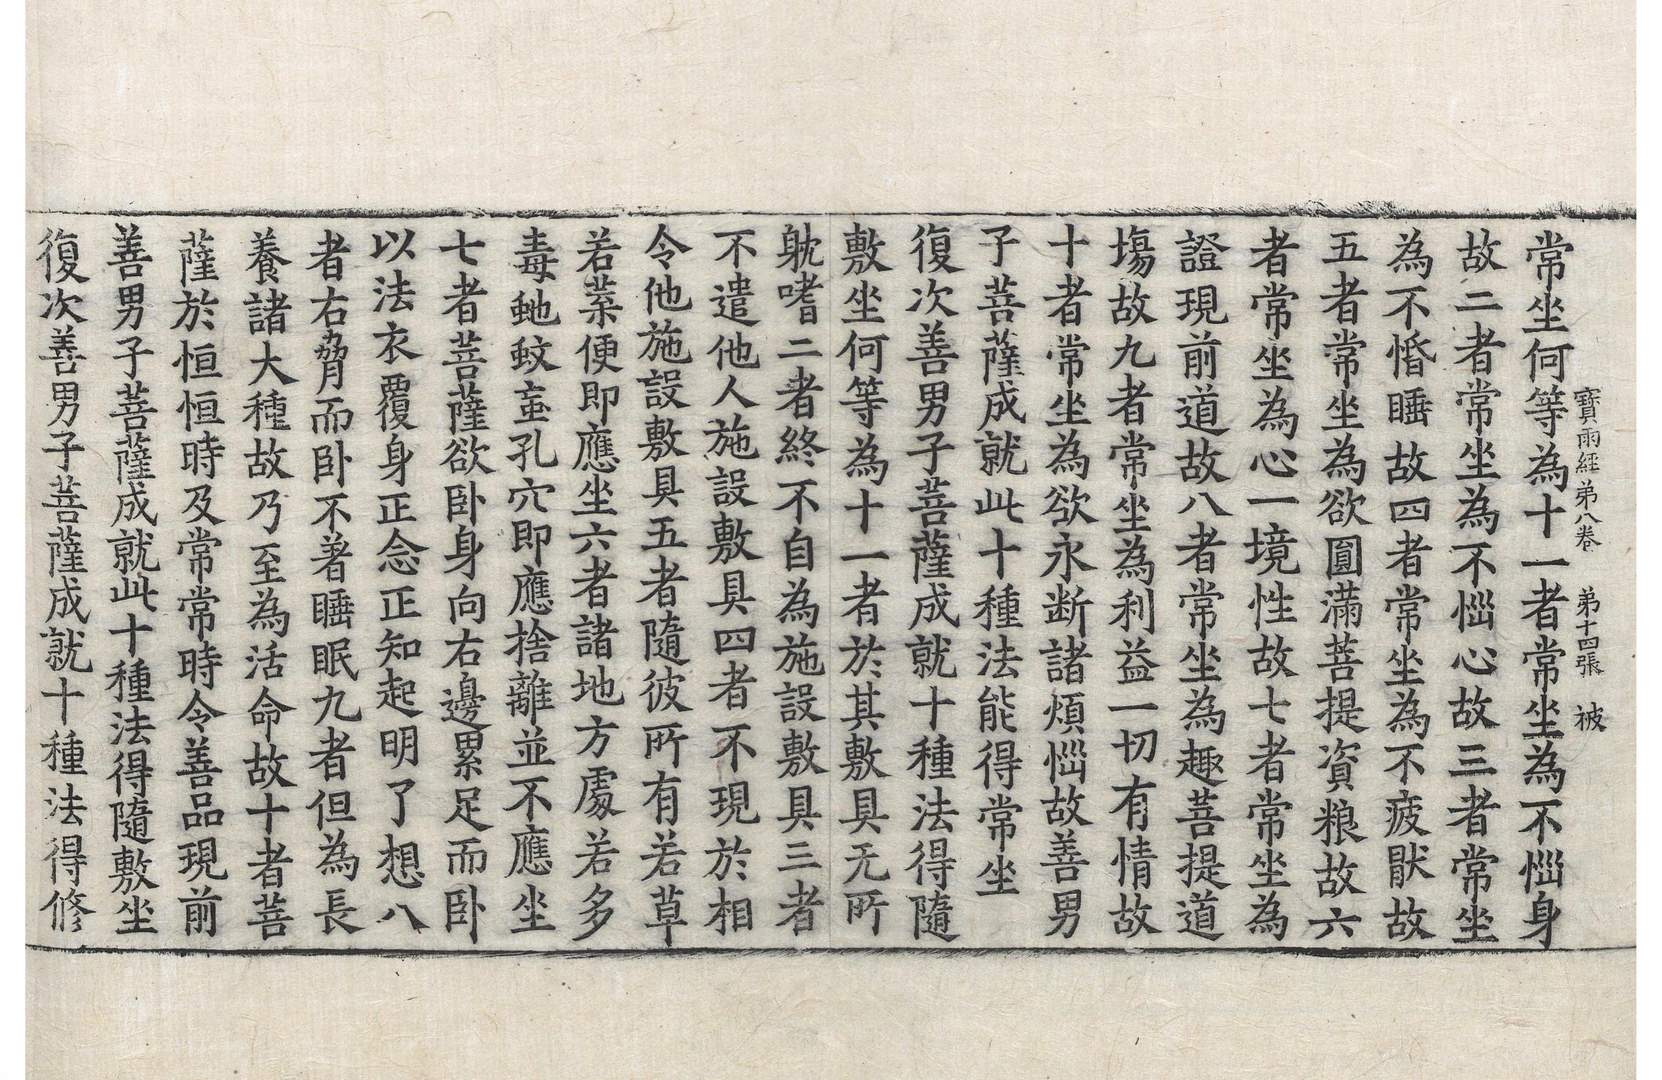 寶雨經弟八卷　弟十四張　被
常坐何等為十一者常坐為不惱身
故二者常坐為不惱心故三者常坐
為不惛睡故四者常坐為不疲猒故
五者常坐為欲圓滿菩提資粮故六
者常坐為心一境性故七者常坐為
證現前道故八者常坐為趣菩提道
塲故九者常坐為利益一切有情故
十者常坐為欲永断諸煩惱故善男
子菩薩成就此十種法能得常坐
復次善男子菩薩成就十種法得隨
敷坐何等為十一者於其敷具无所
躭嗜二者終不自為施設敷具三者
不遣他人施設敷具四者不現於相
令他施設敷具五者隨彼所有若草
若葉便即應坐六者諸地方處若多
毒虵蚊䖟孔穴即應捨離並不應坐
七者菩薩欲卧身向右邊累足而卧
以法衣覆身正念正知起明了想八
者右脅而卧不著睡眠九者但為長
養諸大種故乃至為活命故十者菩
薩於恒恒時及常常時令善品現前
善男子菩薩成就此十種法得隨敷坐
復次善男子菩薩成就十種法得修